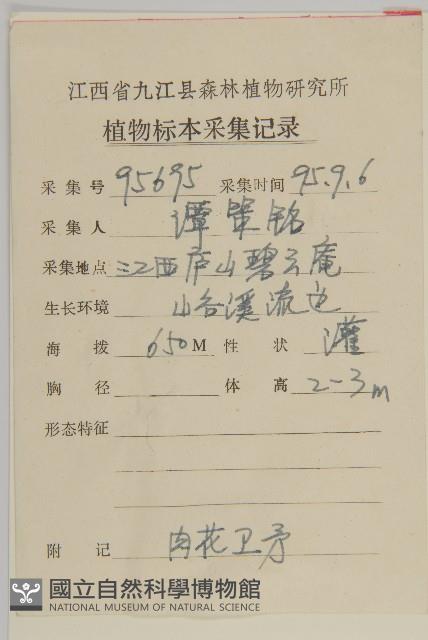 江西省九江县森林植物研究所
植物标本采集记录
采集号 95695 采集时间 95.9.6
采集人 谭策铭
采集地点 江西庐山碧云庵
生长环境 山谷溪流边
海拨 650M 性状 灌
胸径 体高 2-3m
形态特征
附记 肉花卫矛
國立自然科學博物館
NATIONAL MUSEUM OF NATURAL SCIENCE